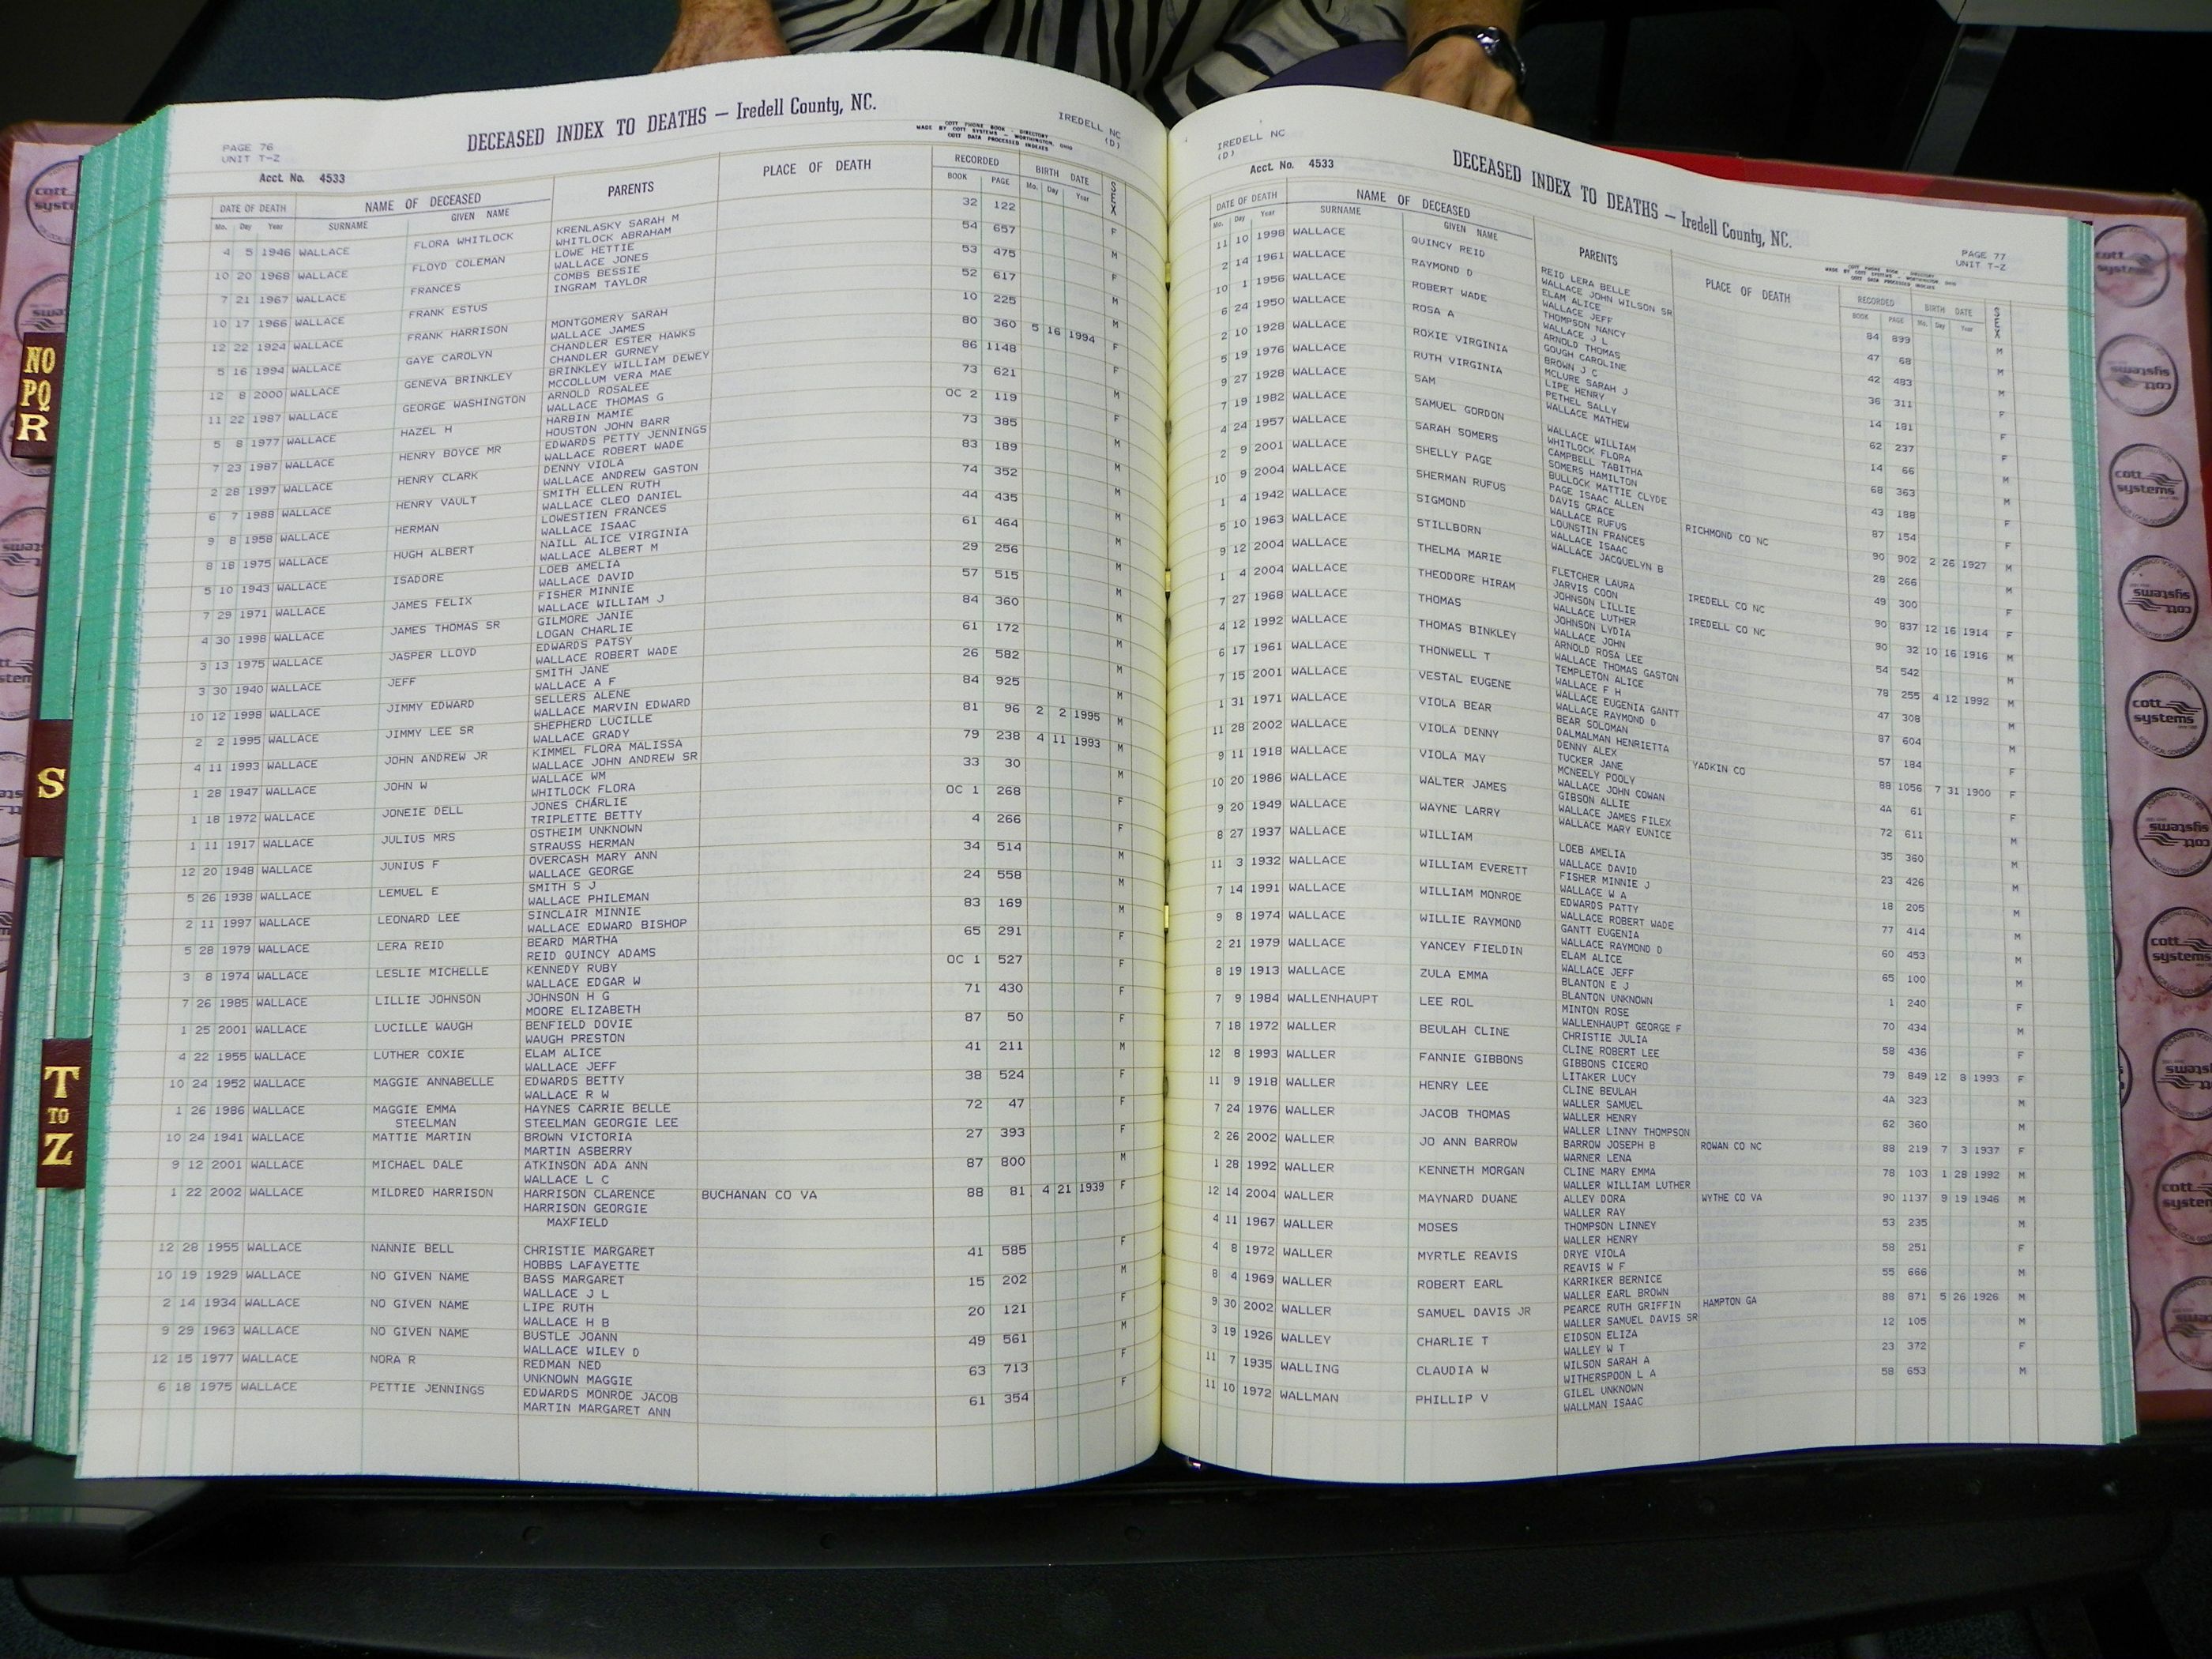 DECEASED INDEX TO DEATHS — Iredell County, NC.
IREDELL NC
(D)
PAGE 76
UNIT T-Z
COTT PHONE BOOK - DIRECTORY
MADE BY COTT SYSTEMS - WORTHINGTON, OHIO
COTT DATA PROCESSED INDEXES
Acct. No. 4533
DATE OF DEATH NAME OF DECEASED PARENTS PLACE OF DEATH RECORDED BIRTH DATE SEX
Mo. Day Year SURNAME GIVEN NAME BOOK PAGE Mo. Day Year
4 5 1946 WALLACE FLORA WHITLOCK KRENLASKY SARAH M 32 122 F
WHITLOCK ABRAHAM
10 20 1968 WALLACE FLOYD COLEMAN LOWE HETTIE 54 657 M
WALLACE JONES
7 21 1967 WALLACE FRANCES COMBS BESSIE 53 475
INGRAM TAYLOR
10 17 1966 WALLACE FRANK ESTUS 52 617 M
12 22 1924 WALLACE FRANK HARRISON MONTGOMERY SARAH 10 225 M
WALLACE JAMES
5 16 1994 WALLACE GAYE CAROLYN CHANDLER ESTER HAWKS 80 360 5 16 1994 F
CHANDLER GURNEY
12 8 2000 WALLACE GENEVA BRINKLEY BRINKLEY WILLIAM DEWEY 86 1148 F
MCCOLLUM VERA MAE
11 22 1987 WALLACE GEORGE WASHINGTON ARNOLD ROSALEE 73 621 M
WALLACE THOMAS G
5 8 1977 WALLACE HAZEL H HARBIN MAMIE OC 2 119 F
HOUSTON JOHN BARR
7 23 1987 WALLACE HENRY BOYCE MR EDWARDS PETTY JENNINGS 73 385 M
WALLACE ROBERT WADE
2 28 1997 WALLACE HENRY CLARK DENNY VIOLA 83 189 M
WALLACE ANDREW GASTON
6 7 1988 WALLACE HENRY VAULT SMITH ELLEN RUTH 74 352 M
WALLACE CLEO DANIEL
9 8 1958 WALLACE HERMAN LOWESTIEN FRANCES 44 435 M
WALLACE ISAAC
8 18 1975 WALLACE HUGH ALBERT NAILL ALICE VIRGINIA 61 464 M
WALLACE ALBERT M
5 10 1943 WALLACE ISADORE LOEB AMELIA 29 256 M
WALLACE DAVID
7 29 1971 WALLACE JAMES FELIX FISHER MINNIE 57 515 M
WALLACE WILLIAM J
4 30 1998 WALLACE JAMES THOMAS SR GILMORE JANIE 84 360 M
LOGAN CHARLIE
3 13 1975 WALLACE JASPER LLOYD EDWARDS PATSY 61 172 M
WALLACE ROBERT WADE
3 30 1940 WALLACE JEFF SMITH JANE 26 582 M
WALLACE A F
10 12 1998 WALLACE JIMMY EDWARD SELLERS ALENE 84 925 M
WALLACE MARVIN EDWARD
2 2 1995 WALLACE JIMMY LEE SR SHEPHERD LUCILLE 81 96 2 2 1995 M
WALLACE GRADY
4 11 1993 WALLACE JOHN ANDREW JR KIMMEL FLORA MALISSA 79 238 4 11 1993 M
WALLACE JOHN ANDREW SR
1 28 1947 WALLACE JOHN W WALLACE WM 33 30 M
WHITLOCK FLORA
1 18 1972 WALLACE JONEIE DELL JONES CHARLIE OC 1 268 F
TRIPLETTE BETTY
1 11 1917 WALLACE JULIUS MRS OSTHEIM UNKNOWN 4 266 F
STRAUSS HERMAN
12 20 1948 WALLACE JUNIUS F OVERCASH MARY ANN 34 514 M
WALLACE GEORGE
5 26 1938 WALLACE LEMUEL E SMITH S J 24 558 M
WALLACE PHILEMAN
2 11 1997 WALLACE LEONARD LEE SINCLAIR MINNIE 83 169 M
WALLACE EDWARD BISHOP
5 28 1979 WALLACE LERA REID BEARD MARTHA 65 291 F
REID QUINCY ADAMS
3 8 1974 WALLACE LESLIE MICHELLE KENNEDY RUBY OC 1 527 F
WALLACE EDGAR W
7 26 1985 WALLACE LILLIE JOHNSON JOHNSON H G 71 430 F
MOORE ELIZABETH
1 25 2001 WALLACE LUCILLE WAUGH BENFIELD DOVIE 87 50 F
WAUGH PRESTON
4 22 1955 WALLACE LUTHER COXIE ELAM ALICE 41 211 M
WALLACE JEFF
10 24 1952 WALLACE MAGGIE ANNABELLE EDWARDS BETTY 38 524 F
WALLACE R W
1 26 1986 WALLACE MAGGIE EMMA HAYNES CARRIE BELLE 72 47 F
STEELMAN STEELMAN GEORGIE LEE
10 24 1941 WALLACE MATTIE MARTIN BROWN VICTORIA 27 393 F
MARTIN ASBERRY
9 12 2001 WALLACE MICHAEL DALE ATKINSON ADA ANN 87 800 M
WALLACE L C
1 22 2002 WALLACE MILDRED HARRISON HARRISON CLARENCE BUCHANAN CO VA 88 81 4 21 1939 F
HARRISON GEORGIE
MAXFIELD
12 28 1955 WALLACE NANNIE BELL CHRISTIE MARGARET 41 585 F
HOBBS LAFAYETTE
10 19 1929 WALLACE NO GIVEN NAME BASS MARGARET 15 202 M
WALLACE J L
2 14 1934 WALLACE NO GIVEN NAME LIPE RUTH 20 121 F
WALLACE H B
9 29 1963 WALLACE NO GIVEN NAME BUSTLE JOANN 49 561 M
WALLACE WILEY D
12 15 1977 WALLACE NORA R REDMAN NED 63 713 F
UNKNOWN MAGGIE
6 18 1975 WALLACE PETTIE JENNINGS EDWARDS MONROE JACOB 61 354 F
MARTIN MARGARET ANN
IREDELL NC
(D)
DECEASED INDEX TO DEATHS — Iredell County, NC.
PAGE 77
UNIT T-Z
Acct. No. 4533
DATE OF DEATH NAME OF DECEASED PARENTS PLACE OF DEATH RECORDED BIRTH DATE SEX
Mo. Day Year SURNAME GIVEN NAME BOOK PAGE Mo. Day Year
11 10 1998 WALLACE QUINCY REID REID LERA BELLE 84 899 M
WALLACE JOHN WILSON SR
2 14 1961 WALLACE RAYMOND D ELAM ALICE 47 68 M
WALLACE JEFF
10 1 1956 WALLACE ROBERT WADE THOMPSON NANCY 42 483 M
WALLACE J L
6 24 1950 WALLACE ROSA A ARNOLD THOMAS 36 311 F
GOUGH CAROLINE
2 10 1928 WALLACE ROXIE VIRGINIA BROWN J C 14 181 F
MCLURE SARAH J
5 19 1976 WALLACE RUTH VIRGINIA LIPE HENRY 62 237 F
PETHEL SALLY
9 27 1928 WALLACE SAM WALLACE MATHEW 14 66 M
7 19 1982 WALLACE SAMUEL GORDON WALLACE WILLIAM 68 363 M
WHITLOCK FLORA
4 24 1957 WALLACE SARAH SOMERS CAMPBELL TABITHA 43 188 F
SOMERS HAMILTON
2 9 2001 WALLACE SHELLY PAGE BULLOCK MATTIE CLYDE 87 154 F
PAGE ISAAC ALLEN
10 9 2004 WALLACE SHERMAN RUFUS DAVIS GRACE RICHMOND CO NC 90 902 2 26 1927 M
WALLACE RUFUS
1 4 1942 WALLACE SIGMOND LOUNSTIN FRANCES 28 266 M
WALLACE ISAAC
5 10 1963 WALLACE STILLBORN WALLACE JACQUELYN B 49 300 F
9 12 2004 WALLACE THELMA MARIE FLETCHER LAURA IREDELL CO NC 90 837 12 16 1914 F
JARVIS COON
1 4 2004 WALLACE THEODORE HIRAM JOHNSON LILLIE IREDELL CO NC 90 32 10 16 1916 M
WALLACE LUTHER
7 27 1968 WALLACE THOMAS JOHNSON LYDIA 54 542 M
WALLACE JOHN
4 12 1992 WALLACE THOMAS BINKLEY ARNOLD ROSA LEE 78 255 4 12 1992 M
WALLACE THOMAS GASTON
6 17 1961 WALLACE THONWELL T TEMPLETON ALICE 47 308 M
WALLACE F H
7 15 2001 WALLACE VESTAL EUGENE WALLACE EUGENIA GANTT 87 604 M
WALLACE RAYMOND D
1 31 1971 WALLACE VIOLA BEAR BEAR SOLOMAN 57 184 F
DALMALMAN HENRIETTA
11 28 2002 WALLACE VIOLA DENNY DENNY ALEX YADKIN CO 88 1056 7 31 1900 F
TUCKER JANE
9 11 1918 WALLACE VIOLA MAY MCNEELY POOLY 4A 61 F
WALLACE JOHN COWAN
10 20 1986 WALLACE WALTER JAMES GIBSON ALLIE 72 611 M
WALLACE JAMES FILEX
9 20 1949 WALLACE WAYNE LARRY WALLACE MARY EUNICE 35 360 M
8 27 1937 WALLACE WILLIAM LOEB AMELIA 23 426 M
WALLACE DAVID
11 3 1932 WALLACE WILLIAM EVERETT FISHER MINNIE J 18 205 M
WALLACE W A
7 14 1991 WALLACE WILLIAM MONROE EDWARDS PATTY 77 414 M
WALLACE ROBERT WADE
9 8 1974 WALLACE WILLIE RAYMOND GANTT EUGENIA 60 453 M
WALLACE RAYMOND D
2 21 1979 WALLACE YANCEY FIELDIN ELAM ALICE 65 100 M
WALLACE JEFF
8 19 1913 WALLACE ZULA EMMA BLANTON E J 1 240 F
BLANTON UNKNOWN
7 9 1984 WALLENHAUPT LEE ROL MINTON ROSE 70 434 M
WALLENHAUPT GEORGE F
7 18 1972 WALLER BEULAH CLINE CHRISTIE JULIA 58 436 F
CLINE ROBERT LEE
12 8 1993 WALLER FANNIE GIBBONS GIBBONS CICERO 79 849 12 8 1993 F
LITAKER LUCY
11 9 1918 WALLER HENRY LEE CLINE BEULAH 4A 323 M
WALLER SAMUEL
7 24 1976 WALLER JACOB THOMAS WALLER HENRY 62 360 M
WALLER LINNY THOMPSON
2 26 2002 WALLER JO ANN BARROW BARROW JOSEPH B ROWAN CO NC 88 219 7 3 1937 F
WARNER LENA
1 28 1992 WALLER KENNETH MORGAN CLINE MARY EMMA 78 103 1 28 1992 M
WALLER WILLIAM LUTHER
12 14 2004 WALLER MAYNARD DUANE ALLEY DORA WYTHE CO VA 90 1137 9 19 1946 M
WALLER RAY
4 11 1967 WALLER MOSES THOMPSON LINNEY 53 235 M
WALLER HENRY
4 8 1972 WALLER MYRTLE REAVIS DRYE VIOLA 58 251 F
REAVIS W F
8 4 1969 WALLER ROBERT EARL KARRIKER BERNICE 55 666 M
WALLER EARL BROWN
9 30 2002 WALLER SAMUEL DAVIS JR PEARCE RUTH GRIFFIN HAMPTON GA 88 871 5 26 1926 M
WALLER SAMUEL DAVIS SR
3 19 1926 WALLEY CHARLIE T EIDSON ELIZA 12 105 M
WALLEY W T
11 7 1935 WALLING CLAUDIA W WILSON SARAH A 23 372 F
WITHERSPOON L A
11 10 1972 WALLMAN PHILLIP V GILEL UNKNOWN 58 653 M
WALLMAN ISAAC
NO
PQ
R
S
T
TO
Z
cott
systems